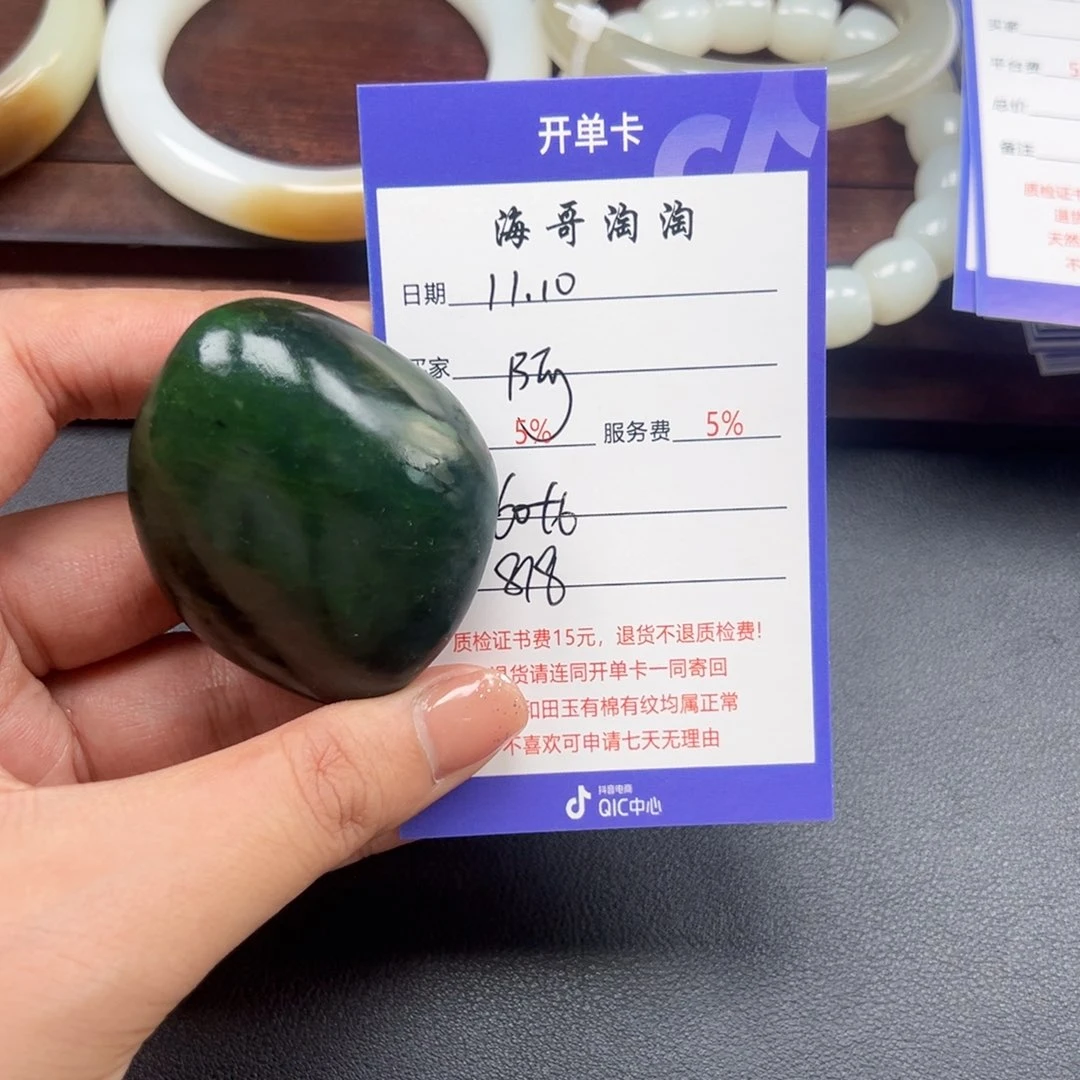 开单卡
海哥淘淘
日期 11.10
买家
5% 服务费 5%
878
质检证书费15元，退货不退质检费！
退货请连同开单卡一同寄回
和田玉有棉有纹均属正常
不喜欢可申请七天无理由
抖音电商
QIC中心
买家
平台费 5
总价
备注
质检证书
退货
天然
不